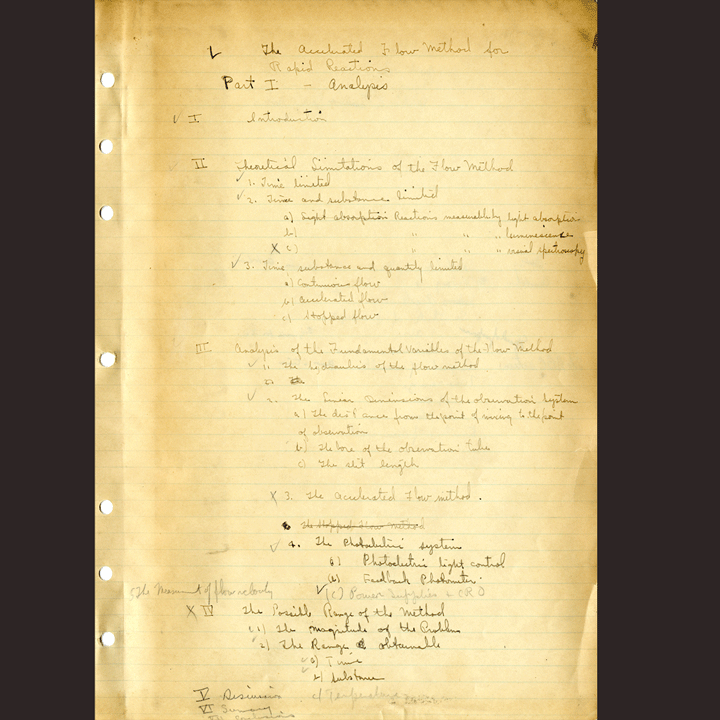 1. The Accelerated Flow Method for
Rapid Reactions
Part I - Analysis
✓ I Introduction
II Theoretical Limitations of the Flow Method
✓ 1. Time limited
✓ 2. Time and substance limited
a) Light absorption Reactions measurable by light absorption
b) " " " luminescence
X c) " " " visual spectroscopy
✓ 3. Time, substance and quantity limited
a) Continuous flow
b) Accelerated flow
c) Stopped flow
III Analysis of the Fundamental Variables of the Flow Method
✓ 1. The hydraulics of the flow method
✓ 2. The linear dimensions of the observation system
a) The distance from the point of mixing to the point
of observation
b) The bore of the observation tube
c) The slit length
X 3. The Accelerated Flow method.
The Stopped Flow Method
✓ 4. The Photoelectric system
(a) Photoelectric light control
(b) Feedback Photometer
✓ (c) Power Supplies + CRO
The Measurement of flow velocity
X IV The Possible Range of the Method
(1) The magnitude of the Problem
2) The Range obtainable
a) Time
b) substance
c) Temperature
V Discussion
VI Summary